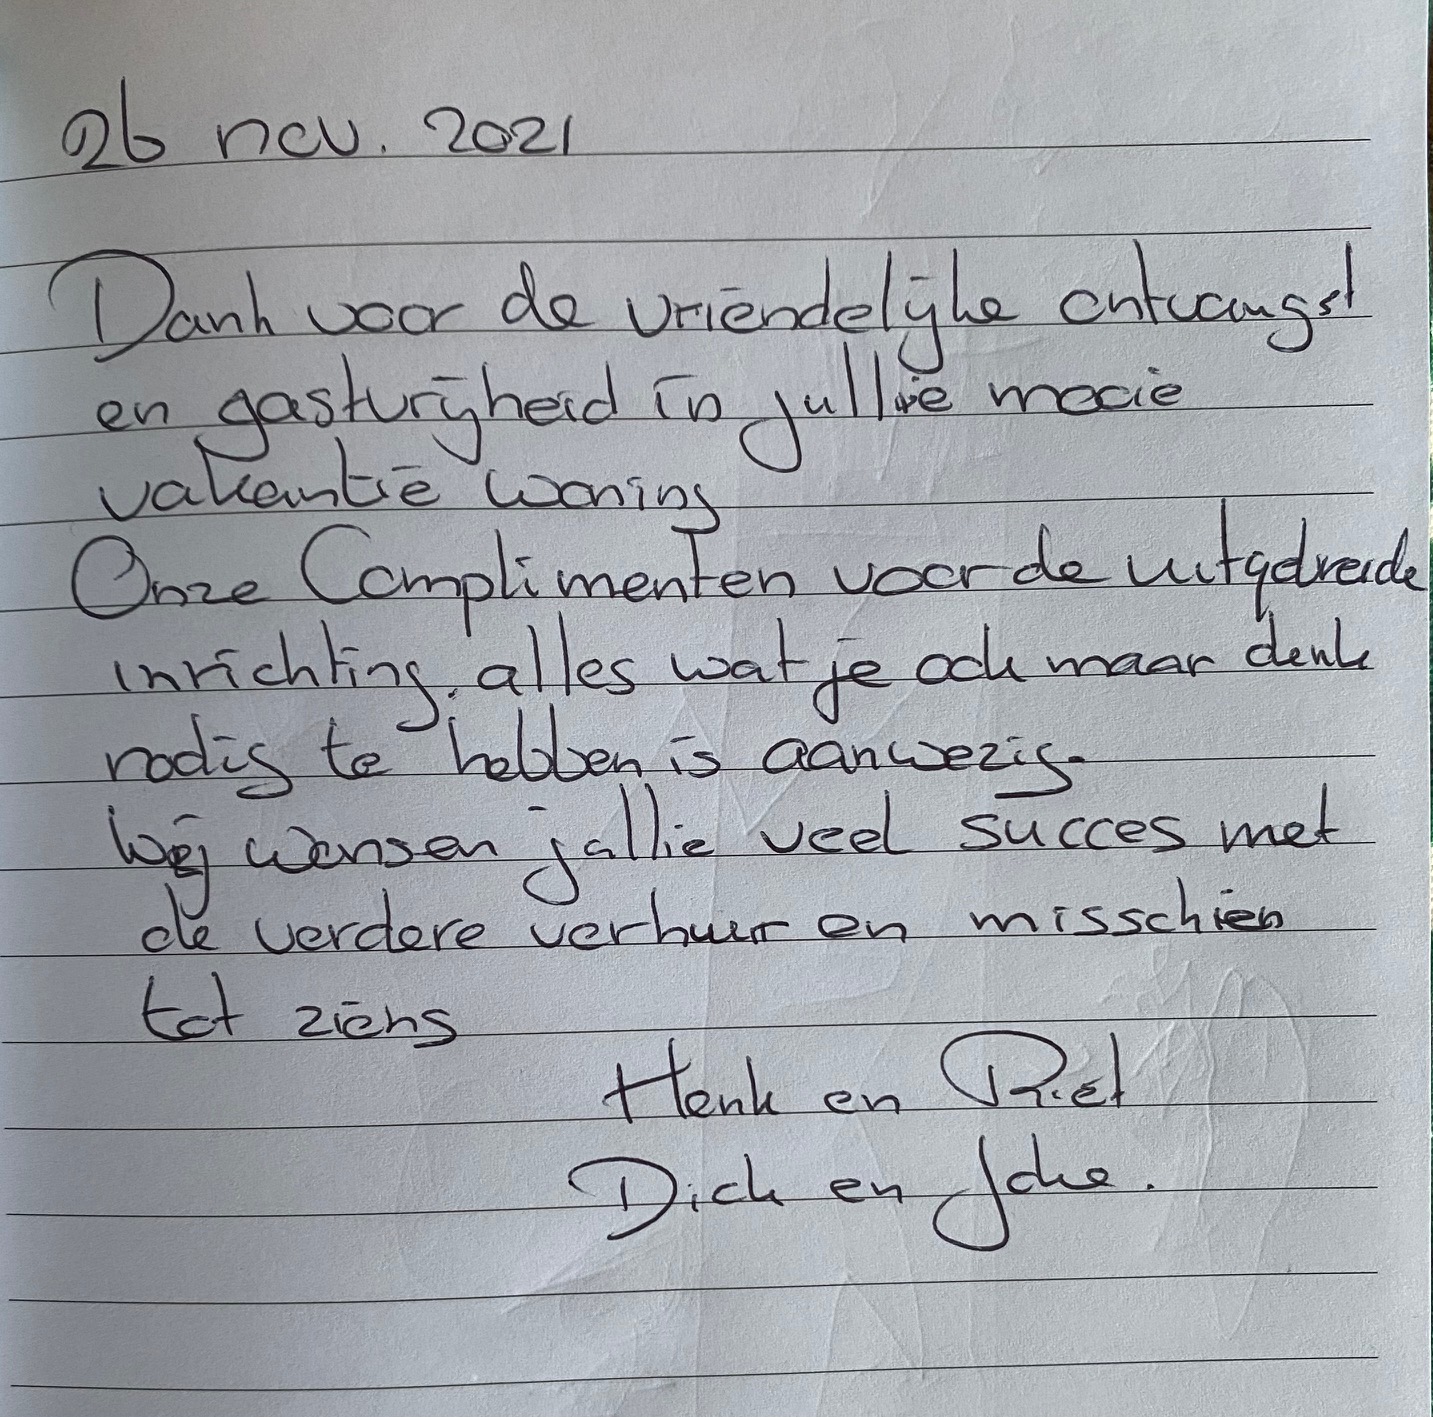 26 nov. 2021
Dank voor de vriendelijke ontvangst
en gastvrijheid in jullie mooie
vakantie woning
Onze Complimenten voor de uitgebreide
inrichting, alles wat je ook maar denk
nodig te hebben is aanwezig.
Wij wensen jullie veel succes met
de verdere verhuur en misschien
tot ziens
Henk en Riet
Dick en Joke.